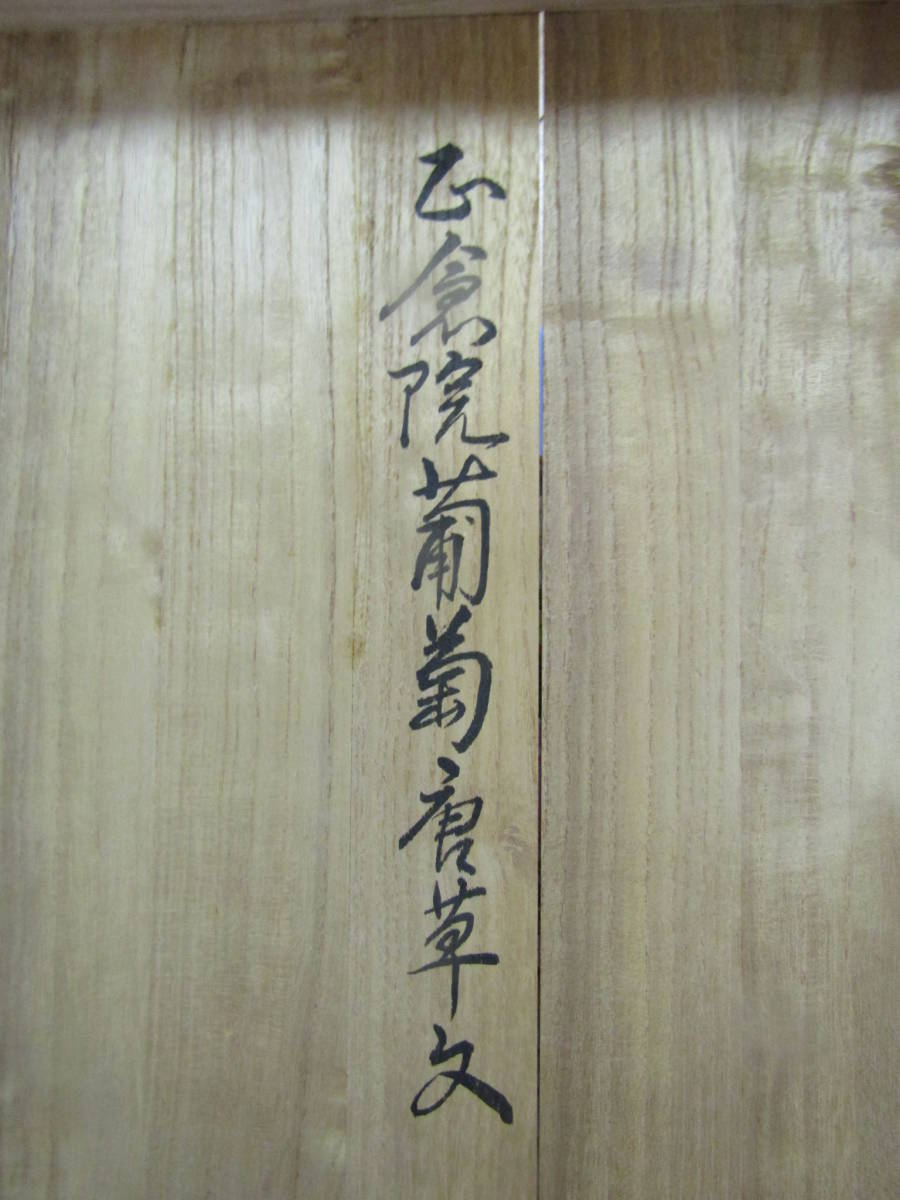 正倉院葡萄唐草文